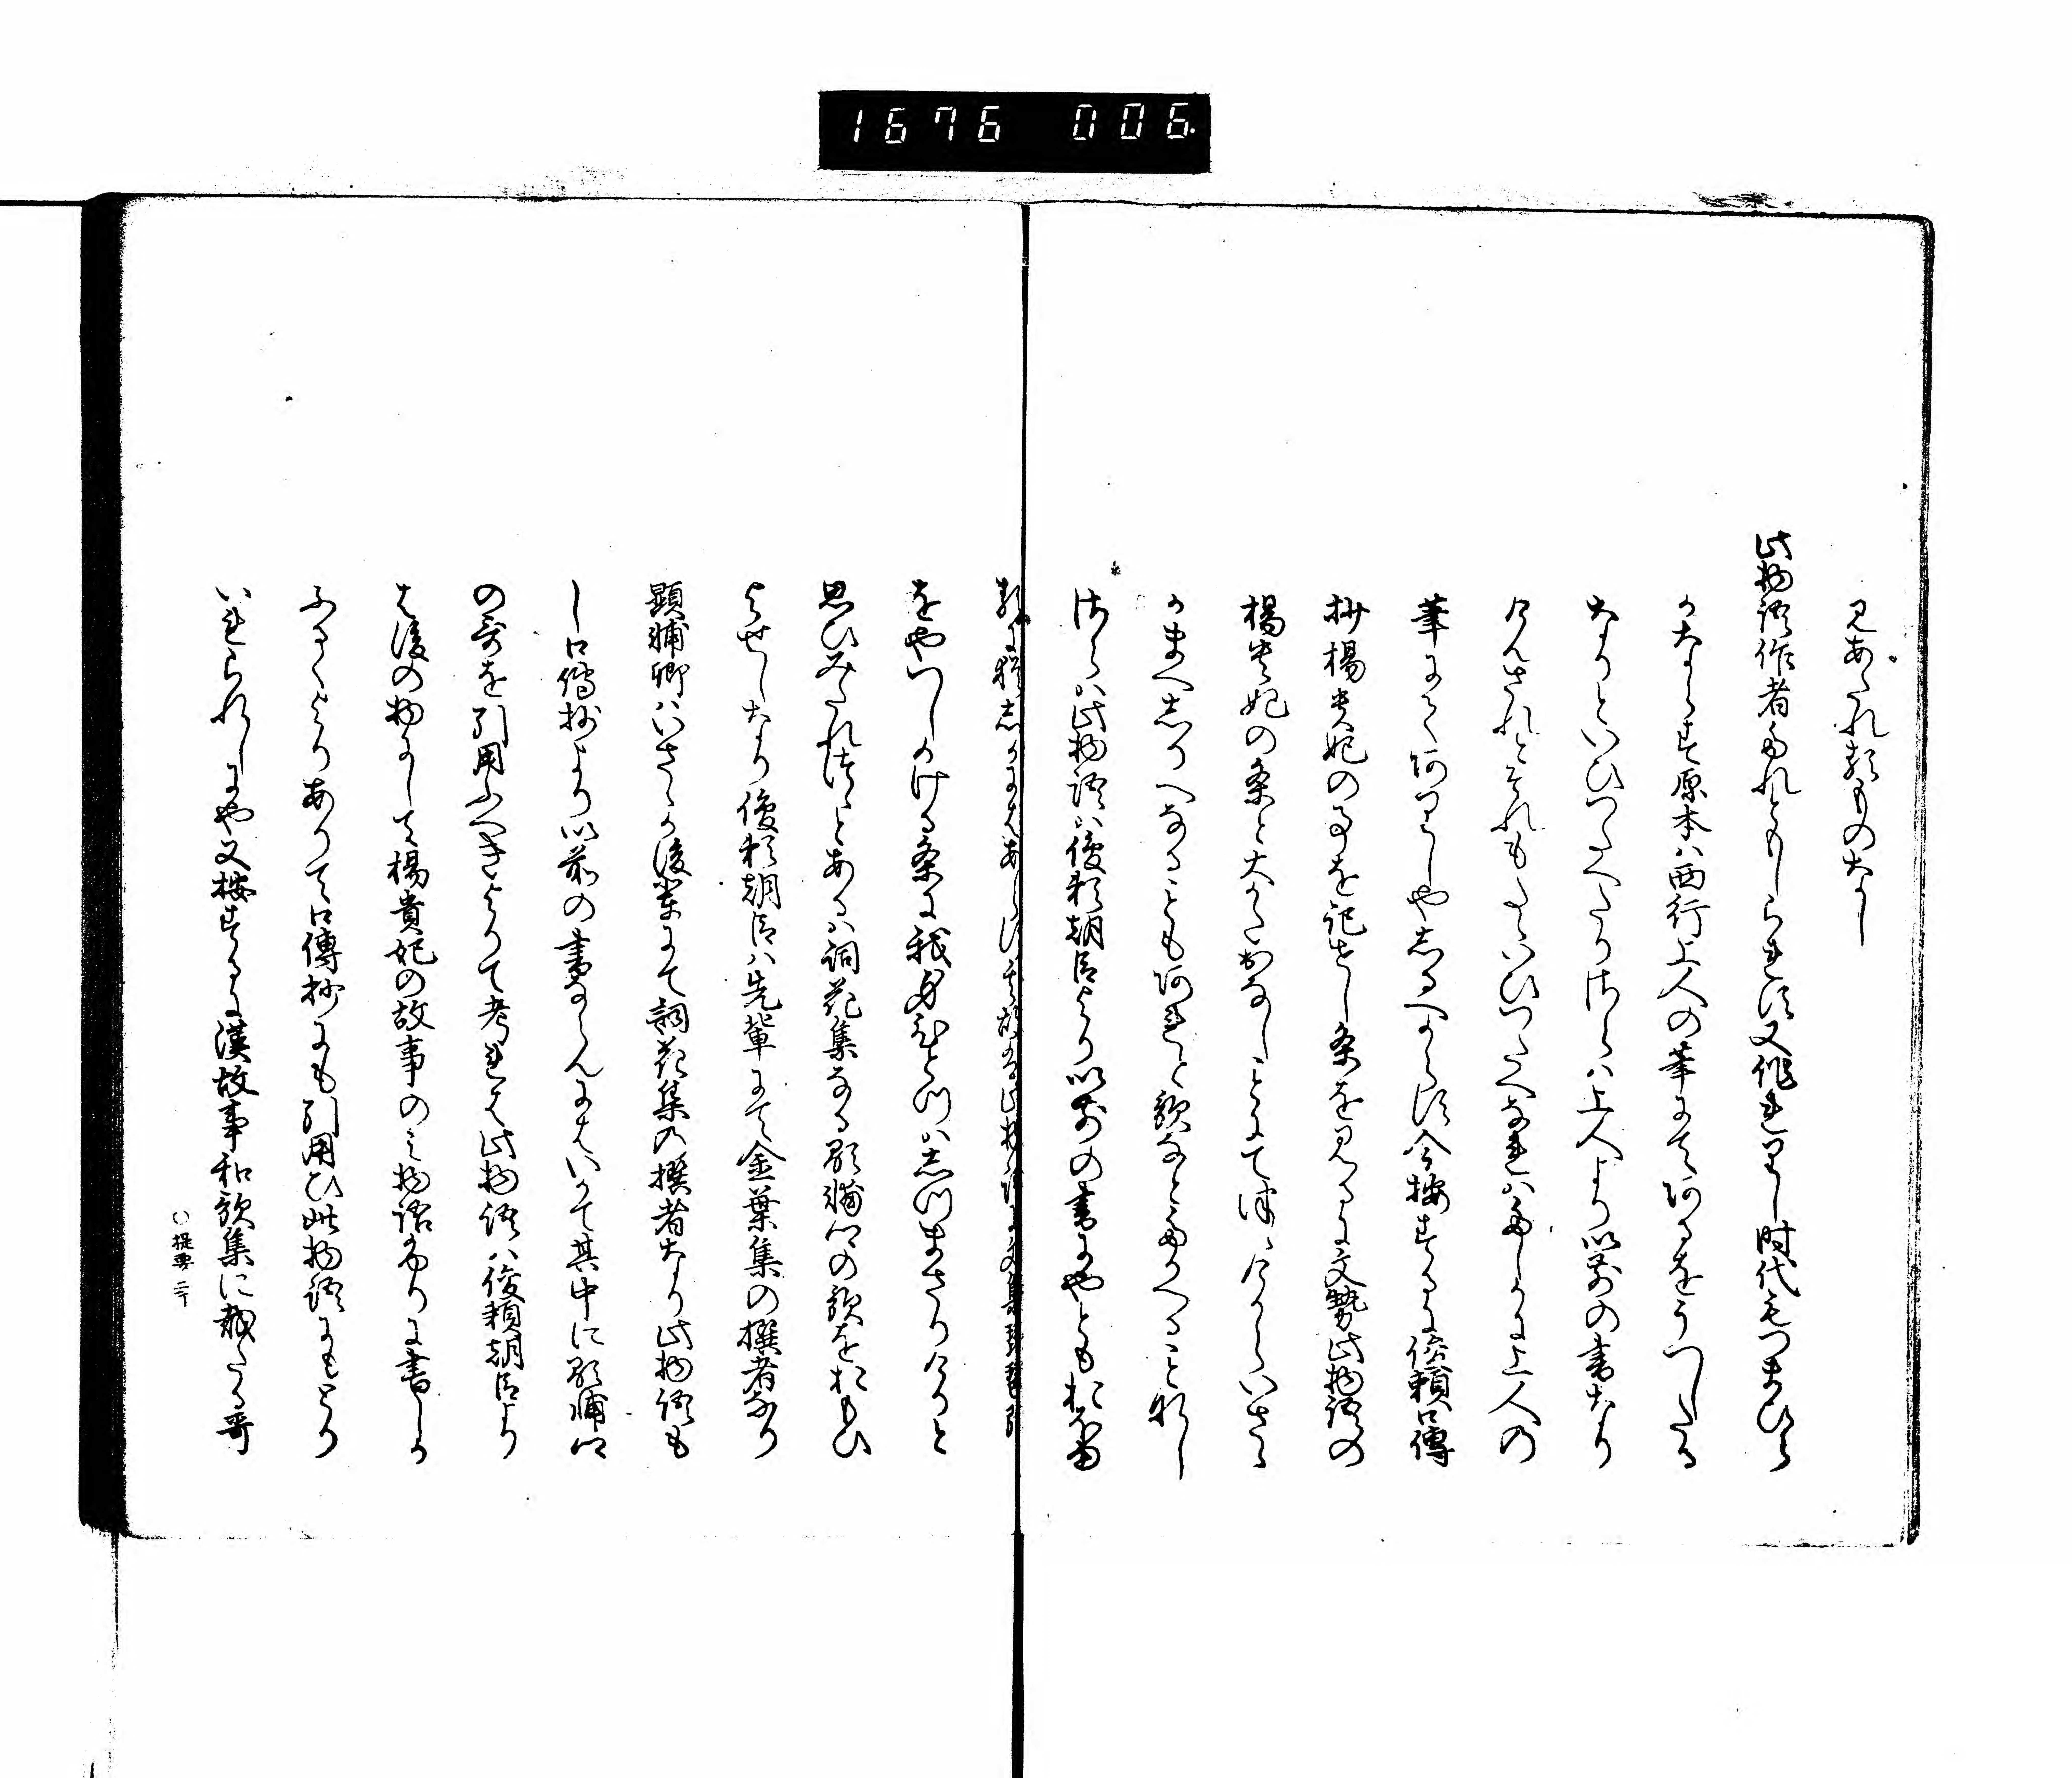 1676 006.
見あたれ類ものなし
此物語作者たれともしられす又作れりし時代もつまひら
かならす原本ハ西行上人の筆にてあるをうつしたる
なりといひつたへたりさらハ上人より以前の書なり
けんされとそれもたゝいひつたへなれハたしかに上人の
筆にてありしや志るへからす今按するに俊頼口傳
抄楊貴妃の事を記せし条を見るに文勢此物語の
楊貴妃の条と大かたおなしことにて
かまへ志りへなることもあれと歌なとたかへることなし
さらハ此物語ハ俊頼朝臣より以前の書にやともおほゆ
をやつしかける条に我身をとつハ志つまさりけりと
思ひみたれはとあるハ詞花集なる顕輔卿の歌をおもひ
よせしなり俊頼朝臣ハ先輩にて金葉集の撰者なり
顕輔卿ハいさゝか後輩にて詞花集の撰者なり此物語も
し口傳抄より以前の書ならんにはいかて其中に顕輔卿
の哥を引用ふへきよりて考れは此物語ハ俊頼朝臣より
は後の物にして楊貴妃の故事のミ物語ふりに書しか
ふるくよりありて口傳抄にも引用ひ此物語にもとり
いれられしにや又按するに漢故事和歌集に載たる哥
○提要 二下